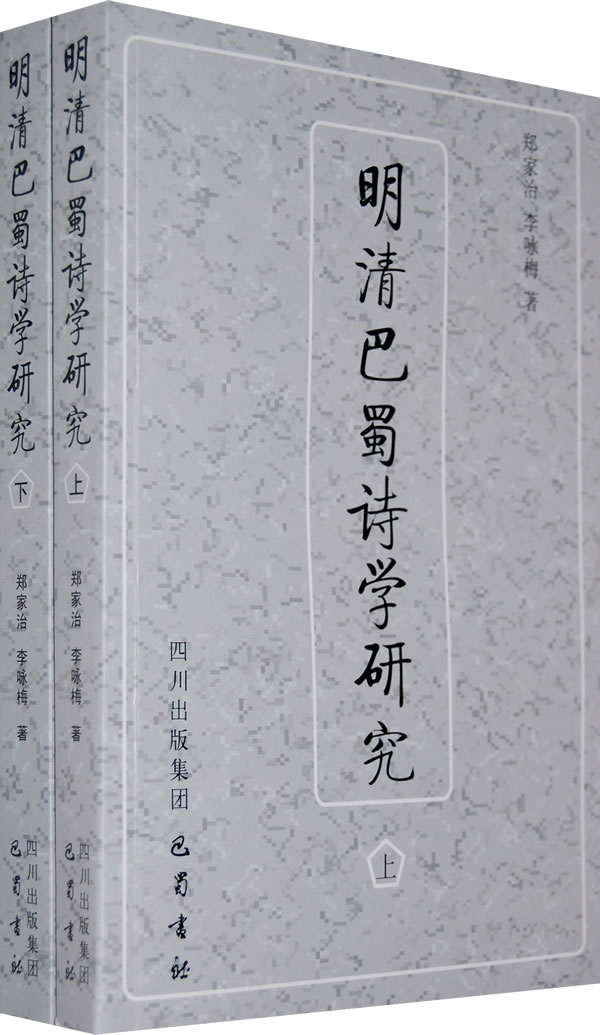 明清巴蜀诗学研究
上
郑家治 李咏梅 著
四川出版集团
巴蜀书社
明清巴蜀诗学研究
上
郑家治 李咏梅 著
四川出版集团
巴蜀书社
明清巴蜀诗学研究
下
郑家治 李咏梅 著
四川出版集团
巴蜀书社